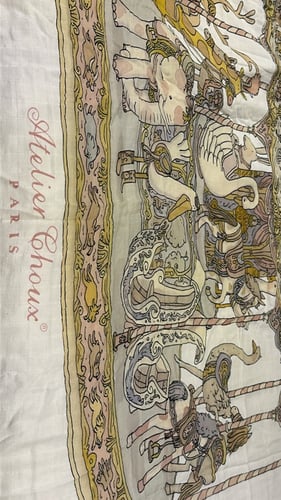 Atelier Choux®
PARIS